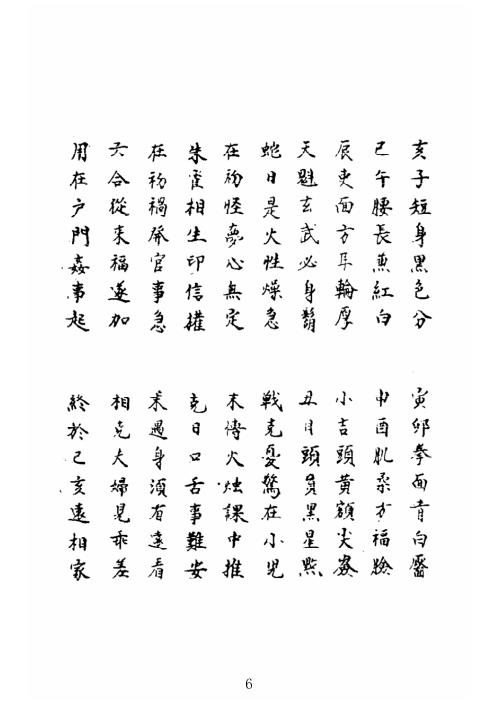 亥子短身黑色分
寅卯拳面青白醫
巳午腰長兼紅白
申酉肌柔方福臉
辰吏面方耳輪厚
小吉頭黃額尖
天魁玄武必身鬍
丑月頭員黑星㸃
蛇日是火性燥急
戰克憂驚在小児
在初怪夢心無定
末傳火燭課中推
朱雀相生印信權
克日口舌事難安
在初禍發官事急
末遇身須有遠看
六合從來福遂加
相克夫婦見乖差
用在户門姦事起
終於巳亥遠相家
6